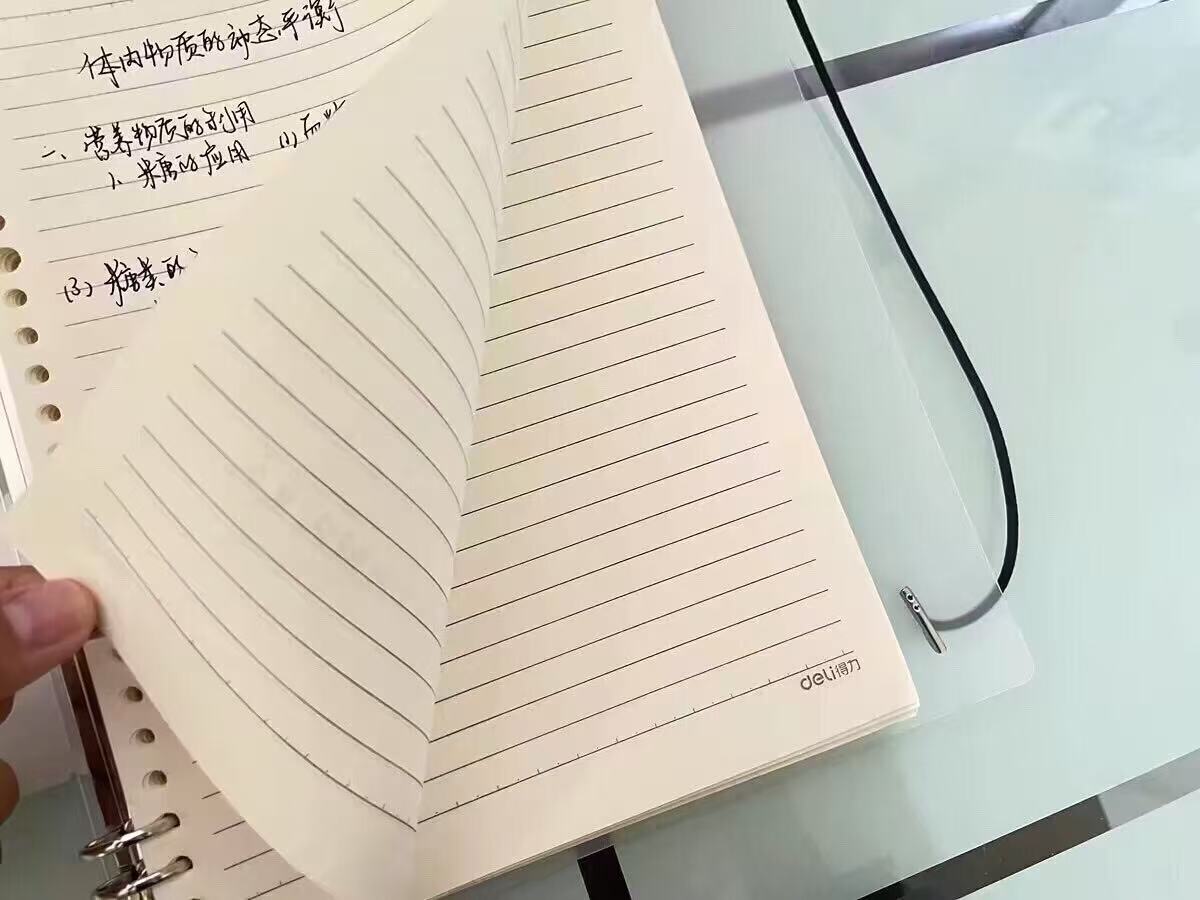 体内物质的动态平衡
一、营养物质的利用
1、糖的应用 (1)
(3) 糖类的
deli得力